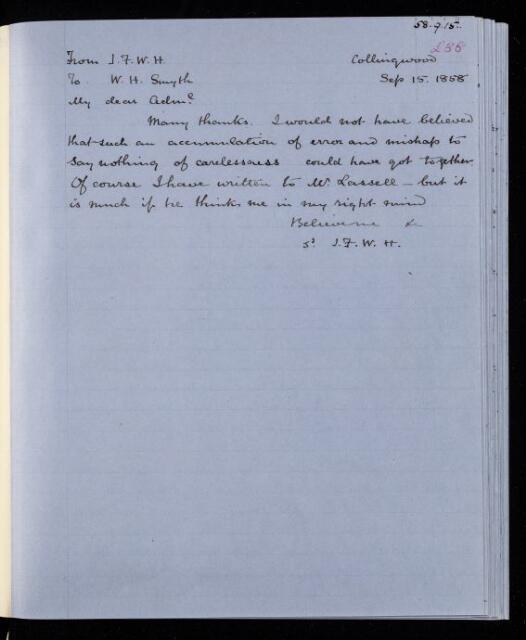 58.9.15.
L58
From J.F.W.H. Collingwood
To W. H. Smyth Sep 15. 1858
My dear Adml
Many thanks. I would not have believed
that such an accumulation of error and mishap to
say nothing of carelessness could have got together
Of course I have written to Mr Lassell – but it
is much if he thinks me in my right mind
Believe me &c
sd J.F.W.H.